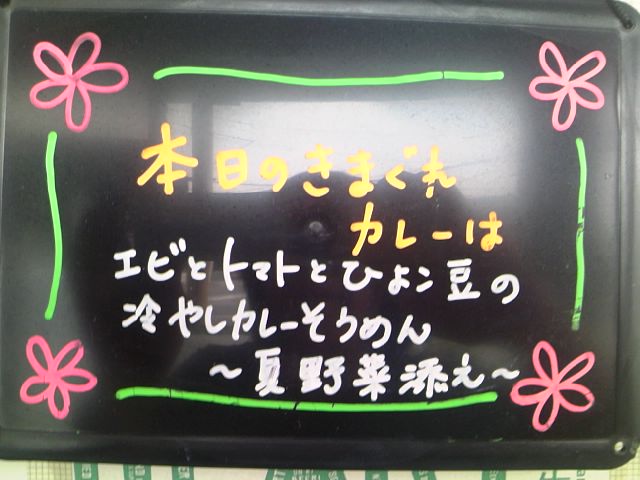 本日のきまぐれ
カレーは
エビとトマトとひよコ豆の
冷やしカレーそうめん
～夏野菜添え～